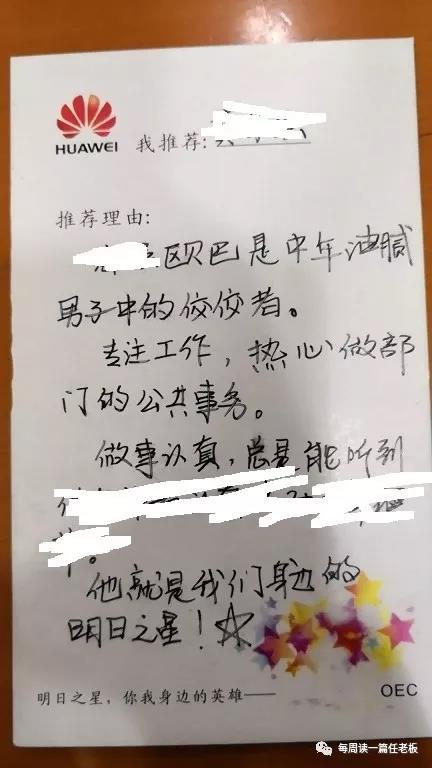 HUAWEI
我推荐:
推荐理由:
欧巴是中年油腻
男子中的佼佼者。
专注工作，热心做部
门的公共事务。
做事认真，总是能听到
。
他就是我们身边的
明日之星！☆
明日之星，你我身边的英雄——
OEC
每周读一篇任老板